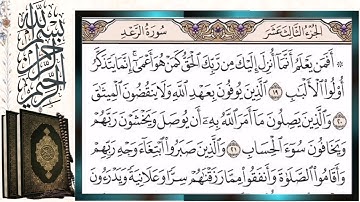 بسم الله الرحمن الرحيم
الجزء الثالث عشر
سورة الرعد
۞ أَفَمَن يَعْلَمُ أَنَّمَآ أُنزِلَ إِلَيْكَ مِن رَّبِّكَ ٱلْحَقُّ كَمَنْ هُوَ أَعْمَىٰٓ ۚ إِنَّمَا يَتَذَكَّرُ
أُو۟لُوا۟ ٱلْأَلْبَـٰبِ ١٩ ٱلَّذِينَ يُوفُونَ بِعَهْدِ ٱللَّهِ وَلَا يَنقُضُونَ ٱلْمِيثَـٰقَ
٢٠ وَٱلَّذِينَ يَصِلُونَ مَآ أَمَرَ ٱللَّهُ بِهِۦٓ أَن يُوصَلَ وَيَخْشَوْنَ رَبَّهُمْ
وَيَخَافُونَ سُوٓءَ ٱلْحِسَابِ ٢١ وَٱلَّذِينَ صَبَرُوا۟ ٱبْتِغَآءَ وَجْهِ رَبِّهِمْ
وَأَقَامُوا۟ ٱلصَّلَوٰةَ وَأَنفَقُوا۟ مِمَّا رَزَقْنَـٰهُمْ سِرًّا وَعَلَانِيَةً وَيَدْرَءُونَ